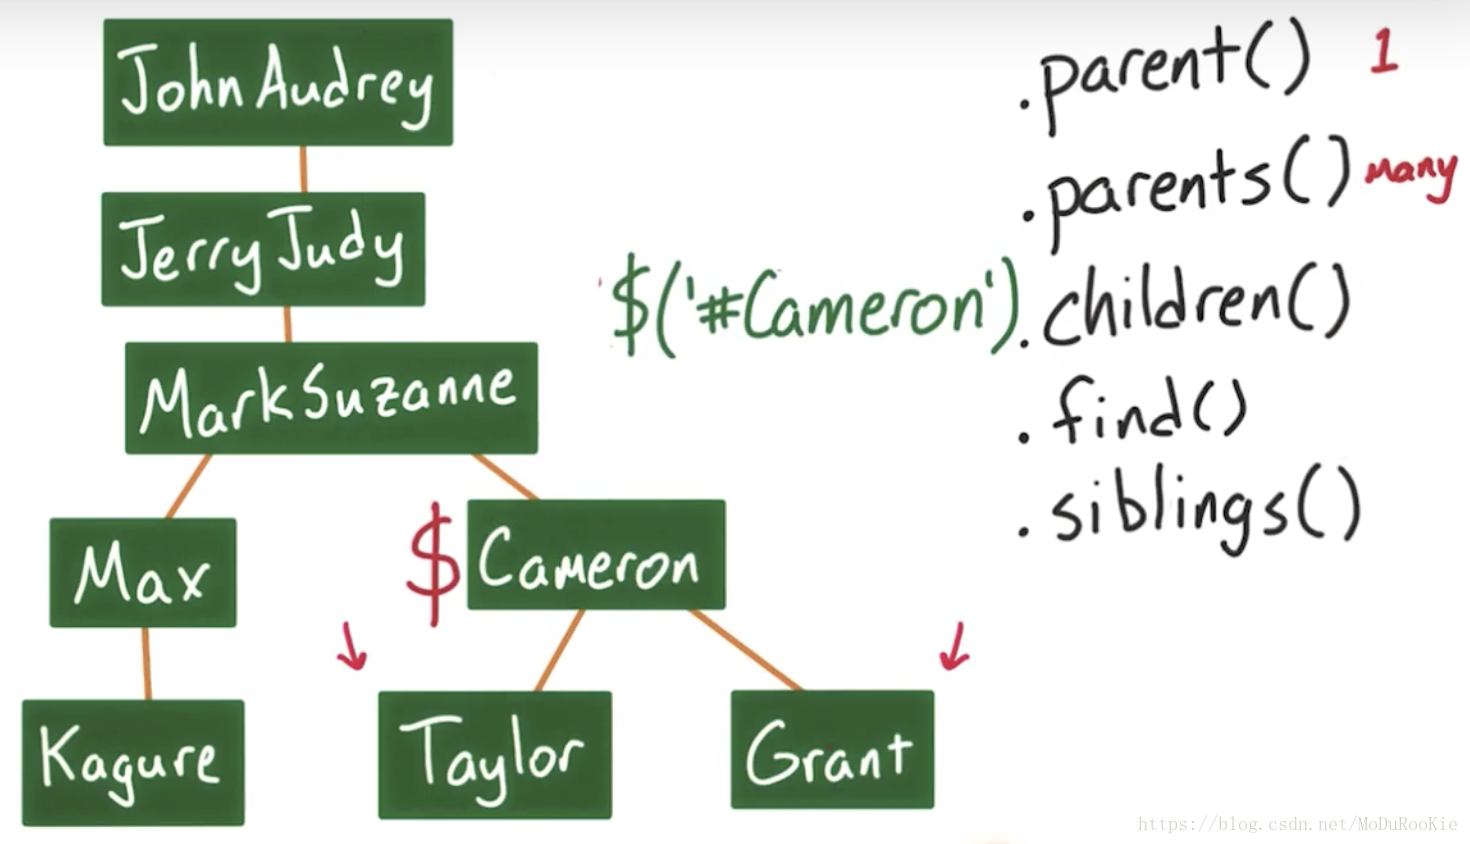 John Audrey
Jerry Judy
Mark Suzanne
Max
$
Cameron
Kagure
Taylor
Grant
$('#Cameron')
.parent() 1
.parents() Many
.children()
.find()
.siblings()
https://blog.csdn.net/MoDuRooKie